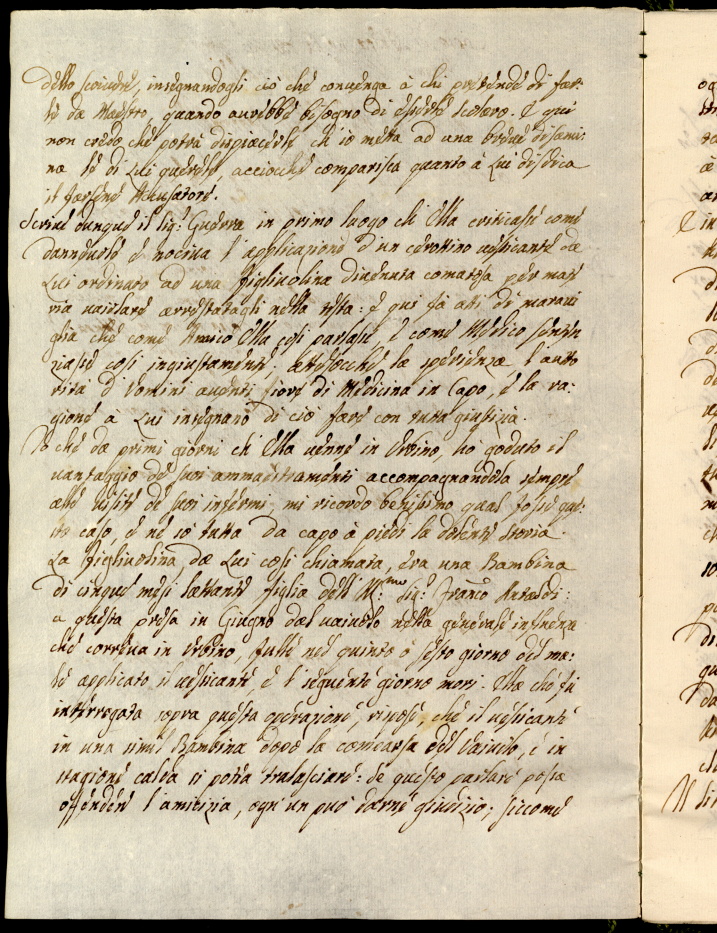 dello scrivere, insegnandogli ciò che convenga à chi pretende di far-
la da Maestro, quando avrebbe bisogno di essere scolaro. E qui
non credo che potrà dispiacerle ch'io metta ad una ad una disami-
na le di Lui querele, acciocchè comparisca quanto à Lui disdica
il farsene Accusatore.
Scrive dunque il Sig.r Guerra in primo luogo ch'Ella criticasse come
dannevole e nociva l'applicazione d'un cerottino vesicante da
Lui ordinato ad una figliuolina divenuta comatosa per mate
ria vaiolare arrestatagli nella testa: e qui fà atti di maravi
glia che come Amico Ella così parlasse, e come Medico senten
ziasse così ingiustamente; attesocchè la sperienza, l'auto
rità d'Uomini aventi fiore di Medicina in Capo, e la ra-
gione à Lui insegnaro di ciò fare con tutta giustizia.
Io che da primi giorni ch'Ella venne in Urbino, hò goduto il
vantaggio de' suoi ammaestramenti accompagnandola sempre
alle visite de' suoi infermi, mi ricordo benissimo qual fosse que-
sto caso, e ne sò tutta da capo à piedi la dolente storia.
La figliuolina da Lui così chiamata, era una Bambina
di cinque mesi lattante figlia dell'Ill.mo Sig.r Franco Antaldi:
a questa presa in Giugno dal vaivolo nella generale influenza
che correva in Urbino, fulle nel quinto o sesto giorno del ma-
le applicato il vesicante, e l'seguente giorno morì. Ella che fù
interrogata sopra questa operazione, rispose, che il vesicante
in una simil Bambina dopo la comparsa del Vaivolo, e in
stagione calda si potea tralasciare: se questo parlare possa
offendere l'amicizia, ogn'un può darne giudizio; siccome